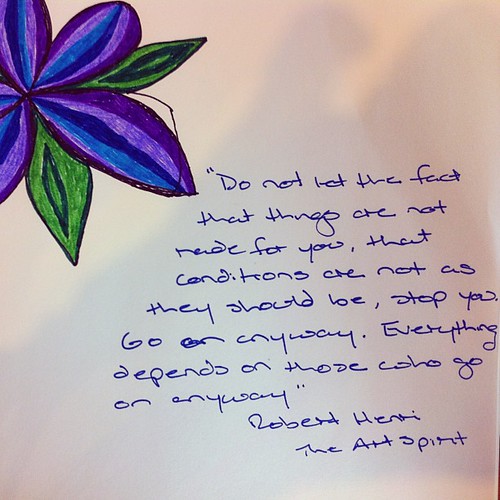 "Do not let the fact
that things are not
made for you, that
conditions are not as
they should be, stop you.
Go on anyway. Everything
depends on those who go
on anyway"
Robert Henri
The Art Spirit